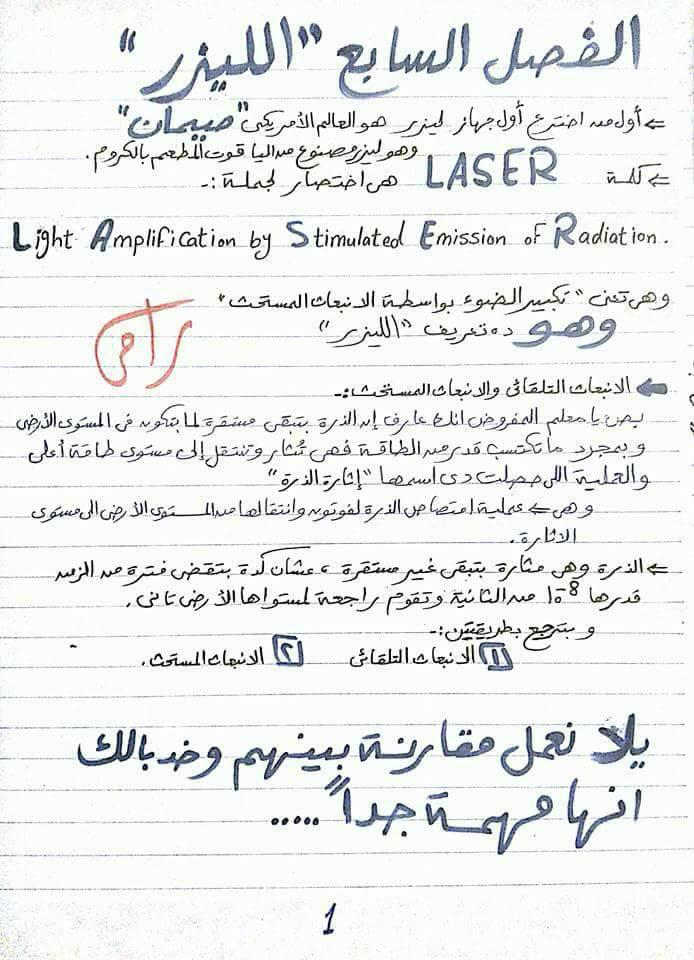 الفصل السابع "الليزر"
⇐ أول من اخترع أول جهاز ليزر هو العالم الأمريكى "ميمان"
وهو ليزر مصنوع من الياقوت المطعم بالكروم.
⇐ كلمة LASER هى اختصار لجملة :-
Light Amplification by Stimulated Emission of Radiation.
وهى تعنى "تكبير الضوء بواسطة الانبعاث المستحث"
وهو ده تعريف "الليزر"
الانبعاث التلقائى والانبعاث المستحث :-
بص يا معلم المفروض انك عارف إن الذرة بتبقى مستقرة لما بتكون فى المستوى الأرضى
و بمجرد ما تكتسب قدر من الطاقة فهى تُثار وتنتقل إلى مستوى طاقة أعلى
والعملية اللى حصلت دى اسمها "إثارة الذرة"
وهى ⇐ عملية امتصاص الذرة لفوتون وانتقالها من المستوى الأرضى الى مستوى
الاثارة.
⇐ الذرة وهى مثارة بتبقى غير مستقرة ، عشان كدة بتقضى فترة من الزمن
قدرها 10⁸ من الثانية وتقوم راجعة لمستواها الأرضى تانى.
و بترجع بطريقتين :-
١ الانبعاث التلقائى ٢ الانبعاث المستحث.
يلا نعمل مقارنة بينهم وخد بالك
انها مهمة جداً .....
1